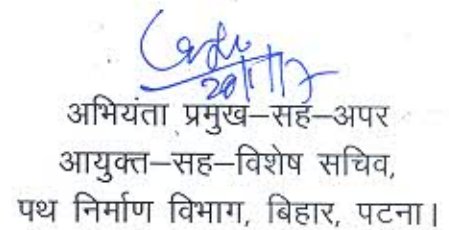 20/1/17
अभियंता प्रमुख–सह–अपर
आयुक्त–सह–विशेष सचिव,
पथ निर्माण विभाग, बिहार, पटना।